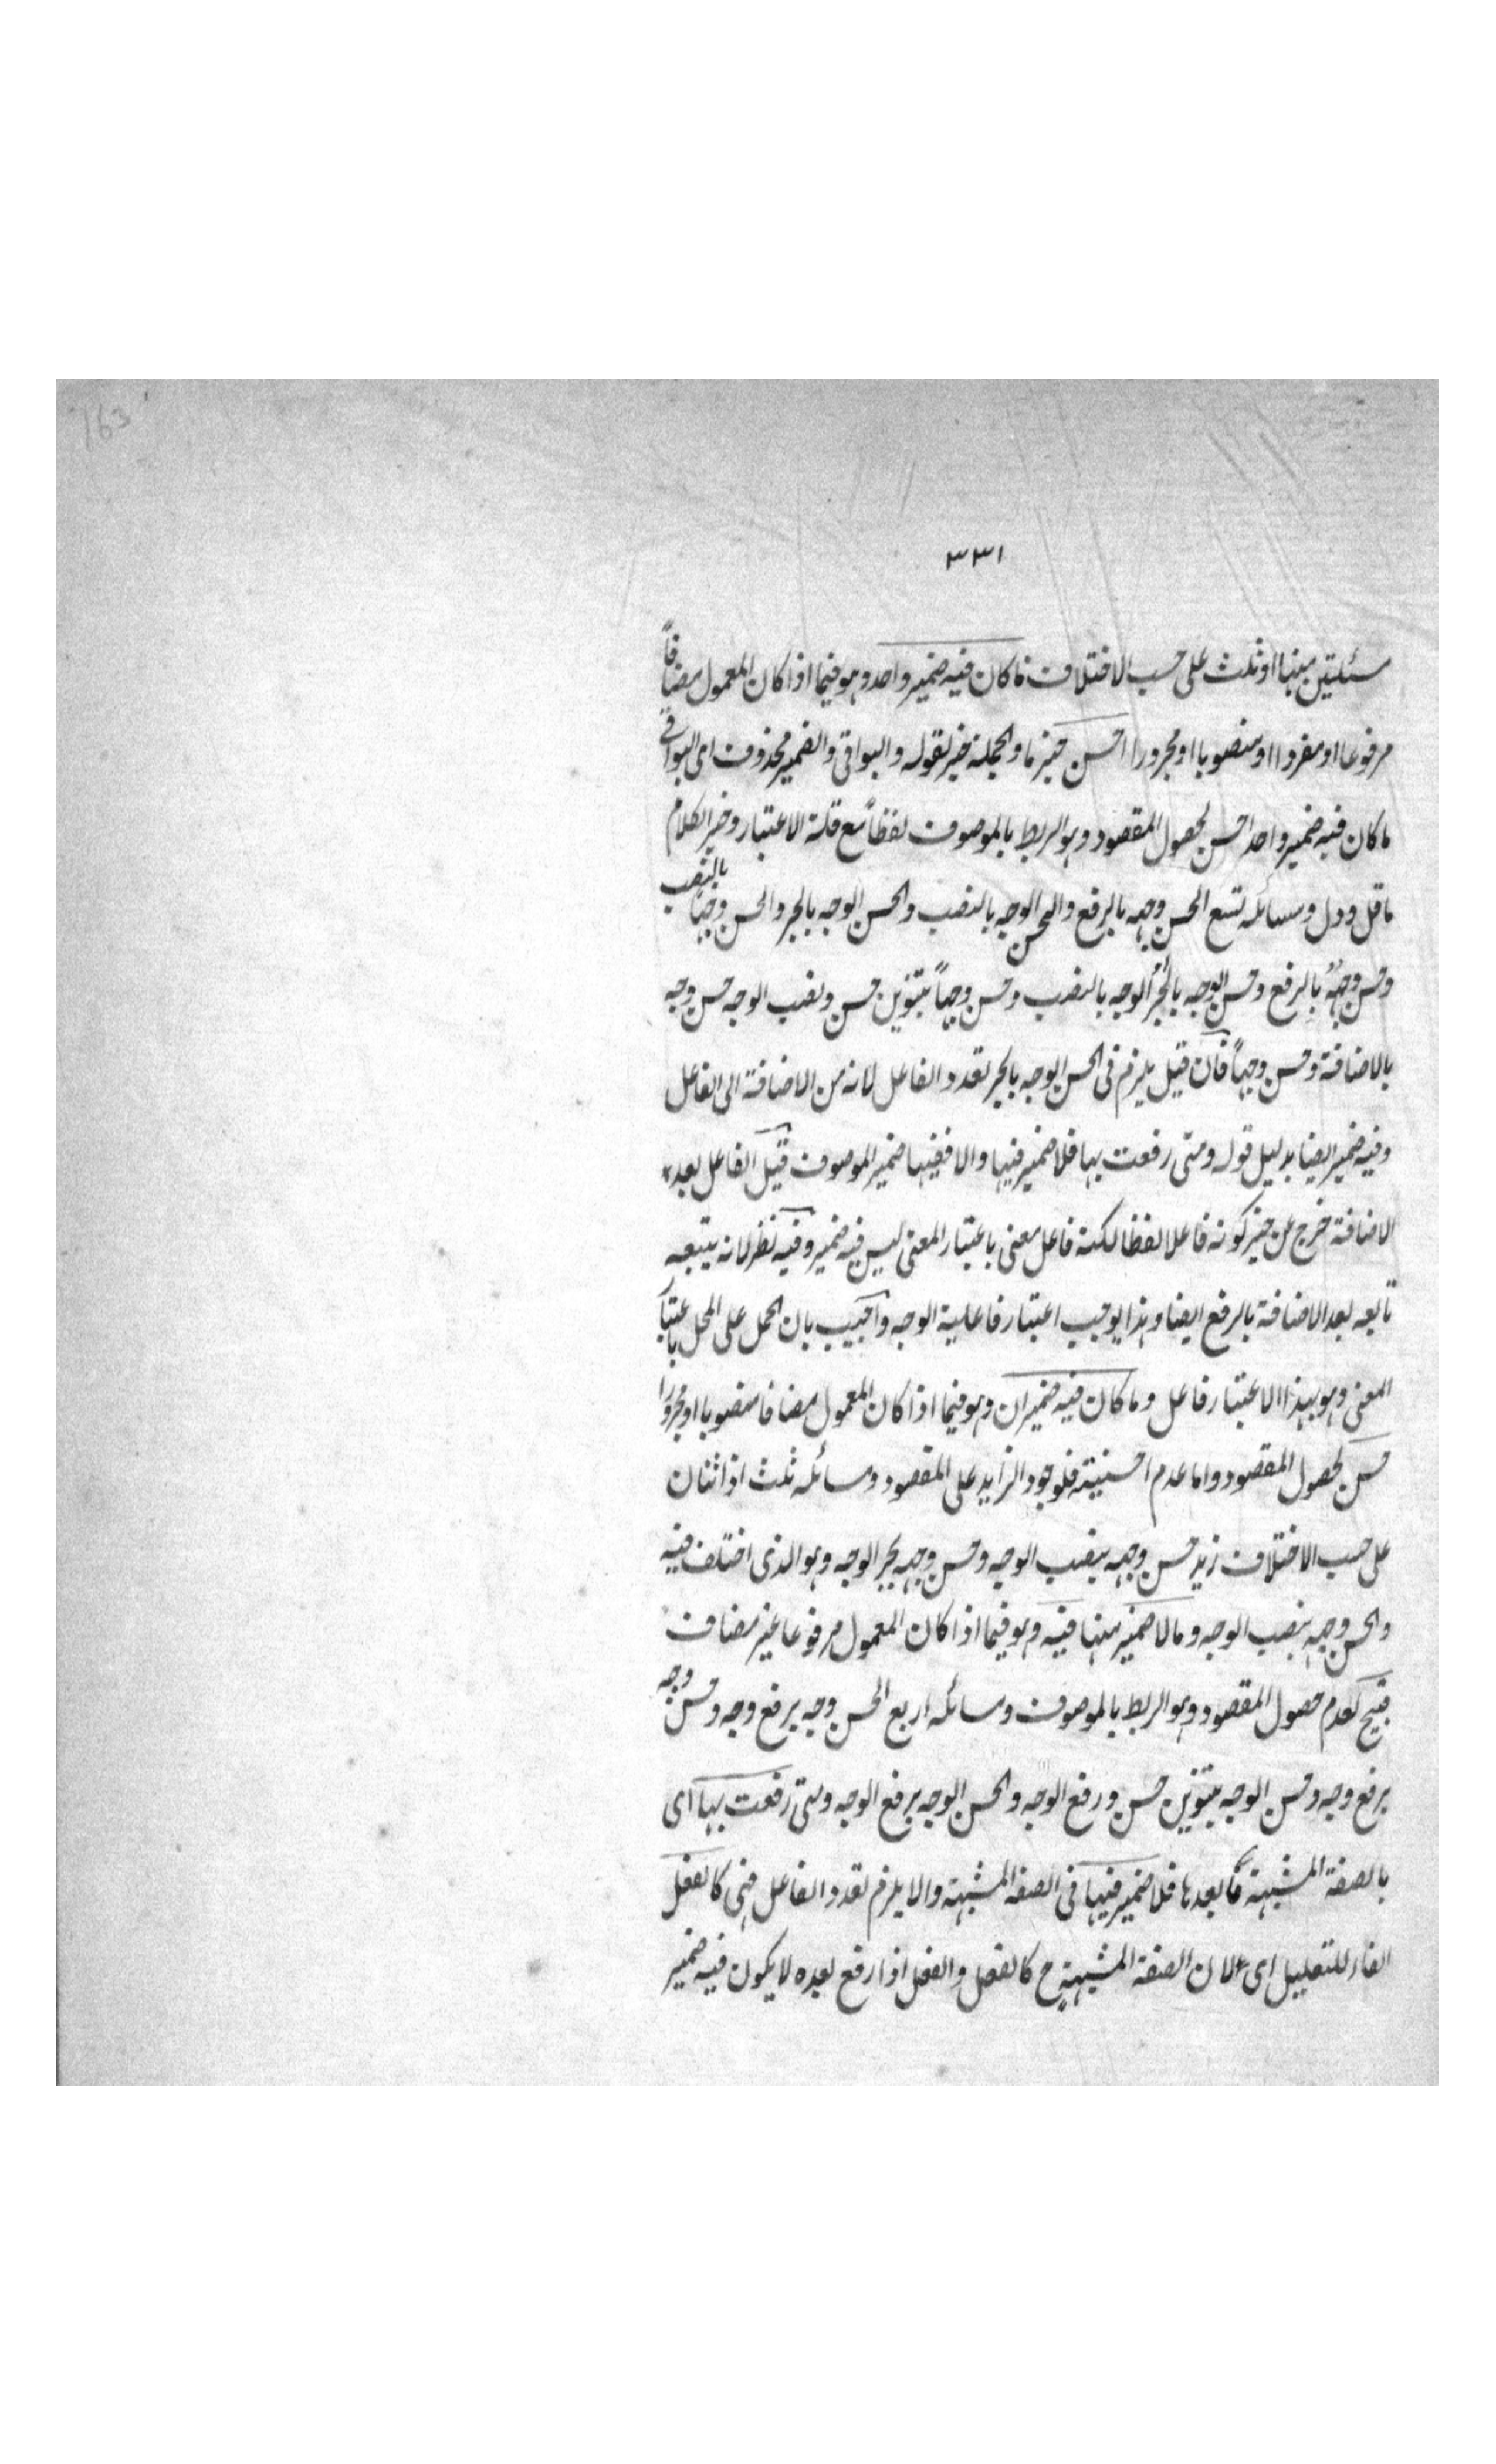 163
٣٣١
مسئلتين منها او ثلث على حسب الاختلاف ما كان فيه ضمير واحد وهو فيما اذا كان المعمول مضافاً
مرفوعا او مفردا او منصوبا او مجرورا احسن خبر ما والجملة خبر لقوله والبواقى والضمير محذوف اى البواقى
ما كان فيه ضمير واحد احسن لحصول المقصود وهو الربط بالموصوف لفظاً مع قلة الاعتبار وخير الكلام
ما قل ودل ومسائله تسع الحسن وجهه بالرفع والحسن الوجه بالنصب والحسن الوجه بالجر والحسن وجهاً بالنصب
وحسن وجهُهُ بالرفع وحسن الوجه بالجر الوجه بالنصب وحسن وجهاً بتنوين حسن ونصب الوجه حسن وجه
بالاضافة وحسن وجهاً فان قيل يلزم فى الحسن الوجه بالجر تعدد الفاعل لانه من الاضافة الى الفاعل
وفيه ضمير ايضا بدليل قوله ومتى رفعت بها فلا ضمير فيها والا ففيها ضمير الموصوف قيل الفاعل بعد
الاضافة خرج عن حيز كونه فاعلا لفظا لكنه فاعل معنى باعتبار المعنى ليس فيه ضمير وفيه نظر لانه يتبعه
تابعه بعد الاضافة بالرفع ايضا وهذا يوجب اعتبار فاعلية الوجه واجيب بان الحمل على المحل باعتبار
المعنى وهو بهذا الاعتبار فاعل وما كان فيه ضميران وهو فيما اذا كان المعمول مضافا منصوبا او مجرورا
حسن لحصول المقصود واما عدم احسنيته فلوجود الزايد على المقصود ومسائله ثلث اذ اثنان
على حسب الاختلاف زيد حسن وجهه بنصب الوجه وحسن وجهه بجر الوجه وهو الذى اختلف فيه
والحسن وجهه بنصب الوجه وما لا ضمير منها فيه وهو فيما اذا كان المعمول مرفوعا غير مضاف
قبيح لعدم حصول المقصود وهو الربط بالموصوف ومسائله اربع الحسن وجه برفع وجه وحسن وجه
برفع وجه وحسن الوجه بتنوين حسن ورفع الوجه والحسن الوجه برفع الوجه ومتى رفعت بها اى
بالصفة المشبهة ما بعدها فلا ضمير فيها فى الصفة المشبهة والا يلزم تعدد الفاعل فهى كالفعل
الفاء للتعليل اى لان الصفة المشبهة ح كالفعل والفعل اذا رفع بعده لا يكون فيه ضمير